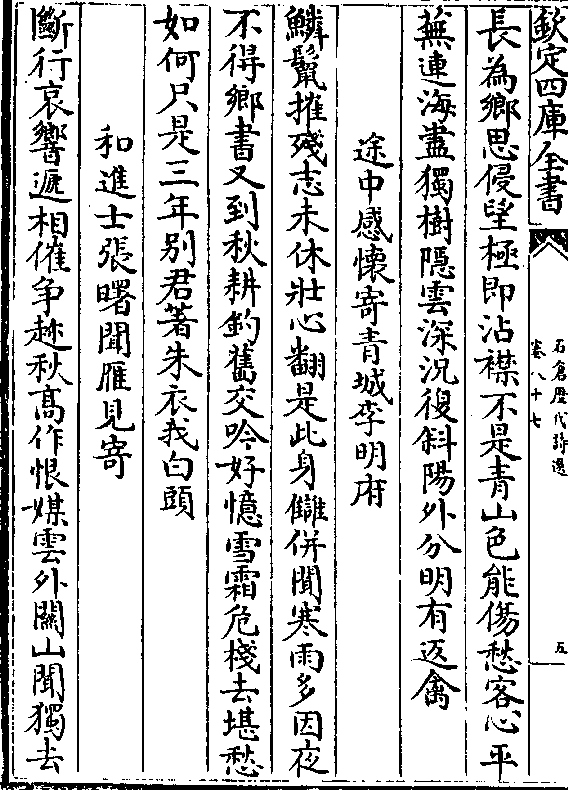 欽定四庫全書
石倉歷代詩選
卷八十七
五
長為鄉思侵望極即沾襟不是青山色能傷愁客心平
蕪連海盡獨樹隱雲深況復斜陽外分明有返禽
途中感懷寄青城李明府
鱗鬣摧殘志未休壯心翻是此身讎併聞寒雨多因夜
不得鄉書又到秋耕釣舊交吟好憶雪霜危棧去堪愁
如何只是三年别君著朱衣我白頭
和進士張曙聞雁見寄
斷行哀響遞相催争趂秋高作恨媒雲外關山聞獨去